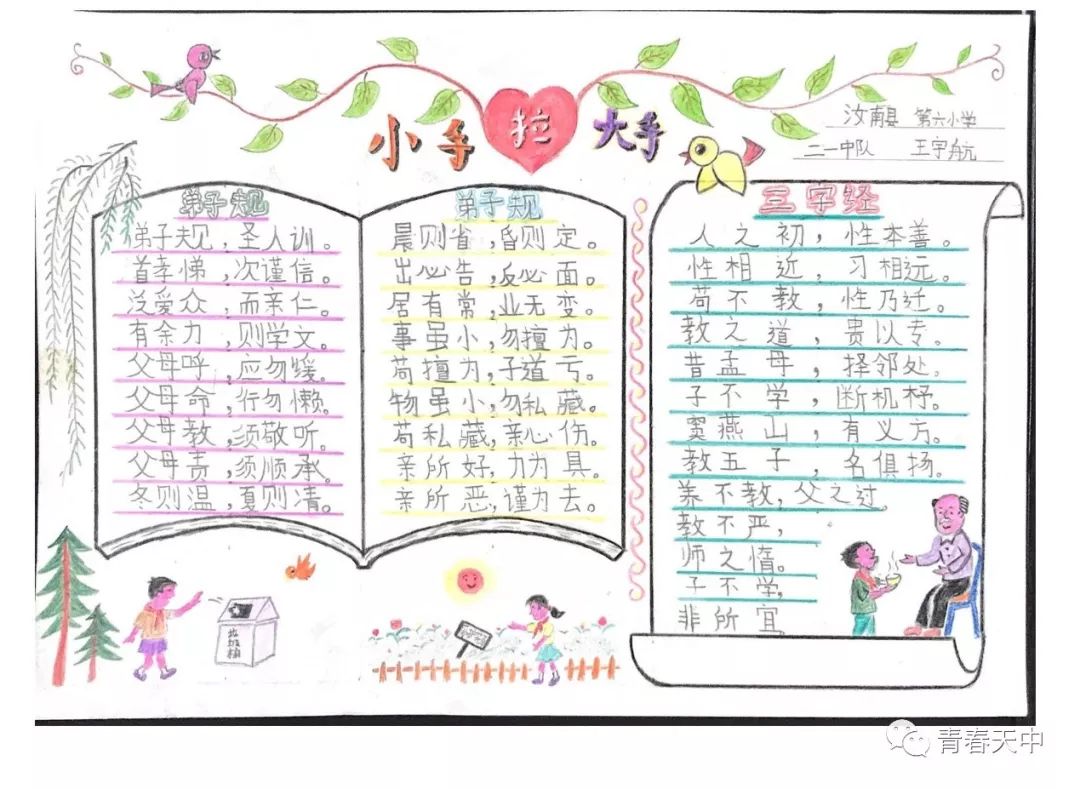 小手拉大手
汝南县 第六小学
二一中队 王宇航
弟子规
弟子规,圣人训。
首孝悌,次谨信。
泛爱众,而亲仁。
有余力,则学文。
父母呼,应勿缓。
父母命,行勿懒。
父母教,须敬听。
父母责,须顺承。
冬则温,夏则凊。
弟子规
晨则省,昏则定。
出必告,反必面。
居有常,业无变。
事虽小,勿擅为。
苟擅为,子道亏。
物虽小,勿私藏。
苟私藏,亲心伤。
亲所好,力为具。
亲所恶,谨为去。
三字经
人之初,性本善。
性相近,习相远。
苟不教,性乃迁。
教之道,贵以专。
昔孟母,择邻处。
子不学,断机杼。
窦燕山,有义方。
教五子,名俱扬。
养不教,父之过
教不严,
师之惰。
子不学,
非所宜
垃圾桶
青春天中